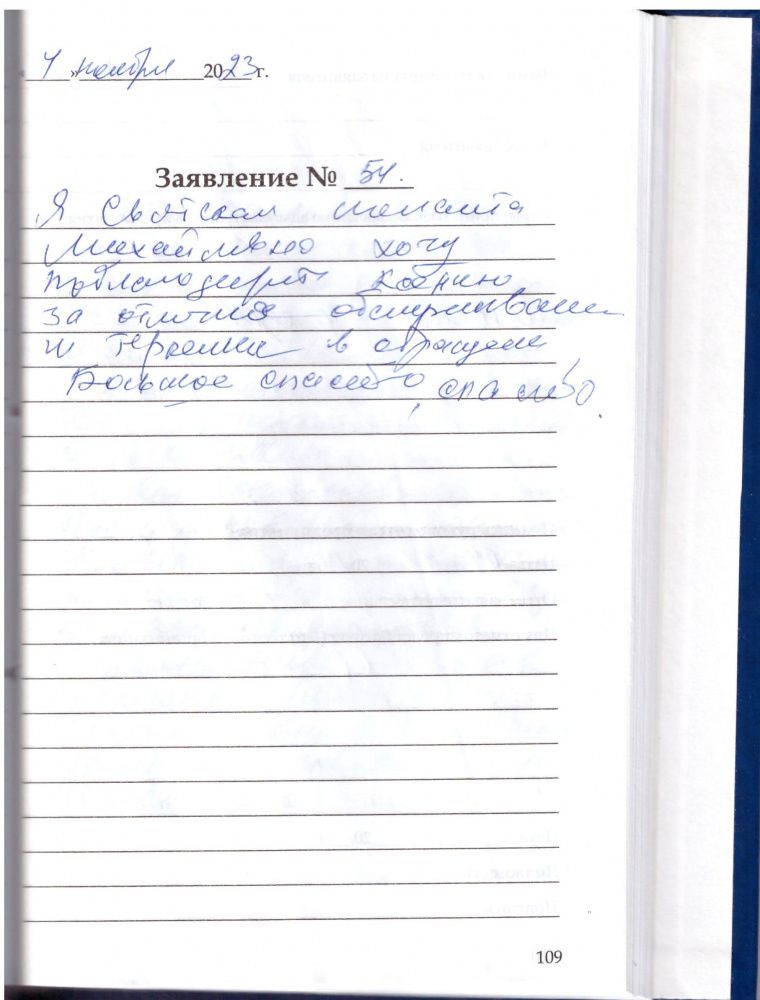 4 » ноября 2023 г.
Заявление № 54.
Я Святская
Михайловна хочу
поблагодарить
за отличное обслуживание
и терпение в обращении
Большое спасибо, спасибо!
109